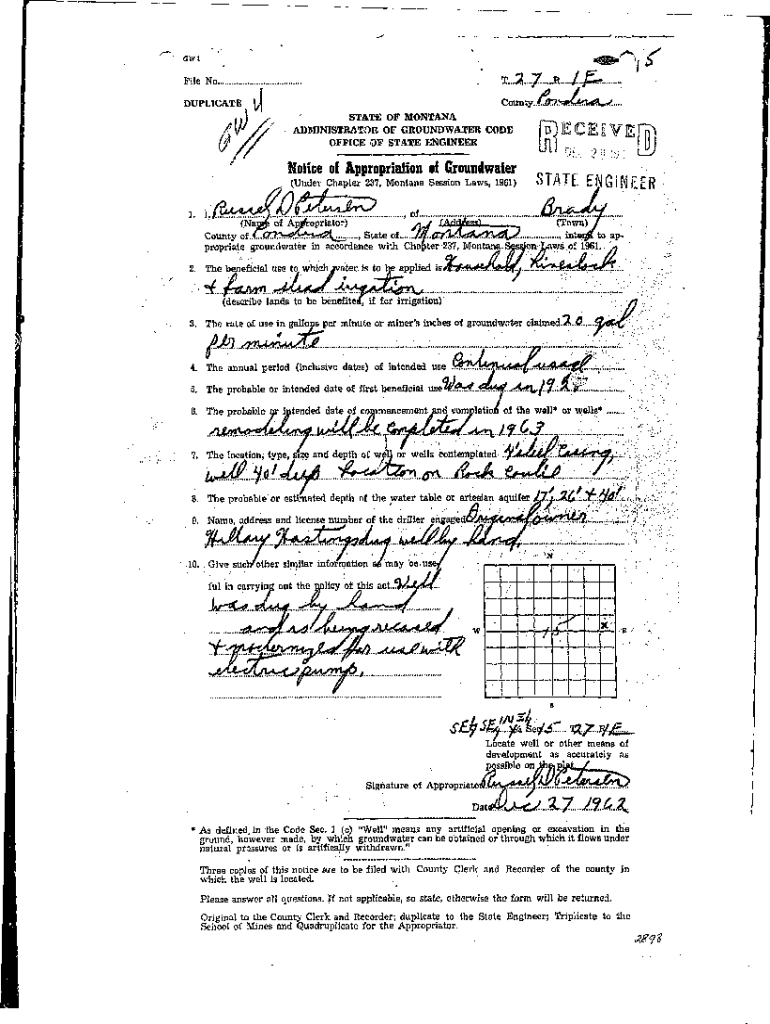 GW1
75
File No.
T. 27 R 1E
DUPLICATE 4
County Pondera
GW 4
STATE OF MONTANA
ADMINISTRATOR OF GROUNDWATER CODE
OFFICE OF STATE ENGINEER
RECEIVED
STATE ENGINEER
Notice of Appropriation of Groundwater
(Under Chapter 237, Montana Session Laws, 1961)
1. I, Russel D Petersen, of Brady
(Name of Appropriator) (Address) (Town)
County of Pondera, State of Montana, intend to ap-
propriate groundwater in accordance with Chapter 237, Montana Session Laws of 1961.
2. The beneficial use to which water is to be applied is Household, Livestock
+ farm stead irrigation
(describe lands to be benefited, if for irrigation)
3. The rate of use in gallons per minute or miner's inches of groundwater claimed 20 gal
per minute
4. The annual period (inclusive dates) of intended use Continual usage
5. The probable or intended date of first beneficial use Was dug in 192
6. The probable or intended date of commencement and completion of the well* or wells*
remodeling will be completed in 1963
7. The location, type, size and depth of well or wells contemplated 4" steel casing,
well 40' deep Location on Rock Coulie
8. The probable or estimated depth of the water table or artesian aquifer 17', 26' + 40'
9. Name, address and license number of the driller engaged Original owner
Hillary Hastings dug well by hand.
10. Give such other similar information as may be use-
ful in carrying out the policy of this act. Well
was dug by hand
and is being recased
+ modernized for use with
electric pump.
N
W
15
x
E
S
SE¼ SE¼ NE¼ Sec 15 27 R 1E
Locate well or other means of
development as accurately as
possible on the plat.
Signature of Appropriator Russel D Petersen
Date Dec 27 1962
* As defined in the Code Sec. 1 (c) "Well" means any artificial opening or excavation in the
ground, however made, by which groundwater can be obtained or through which it flows under
natural pressures or is artifically withdrawn."
Three copies of this notice are to be filed with County Clerk and Recorder of the county in
which the well is located.
Please answer all questions. If not applicable, so state, otherwise the form will be returned.
Original to the County Clerk and Recorder; duplicate to the State Engineer; Triplicate to the
School of Mines and Quadruplicate for the Appropriator.
2898